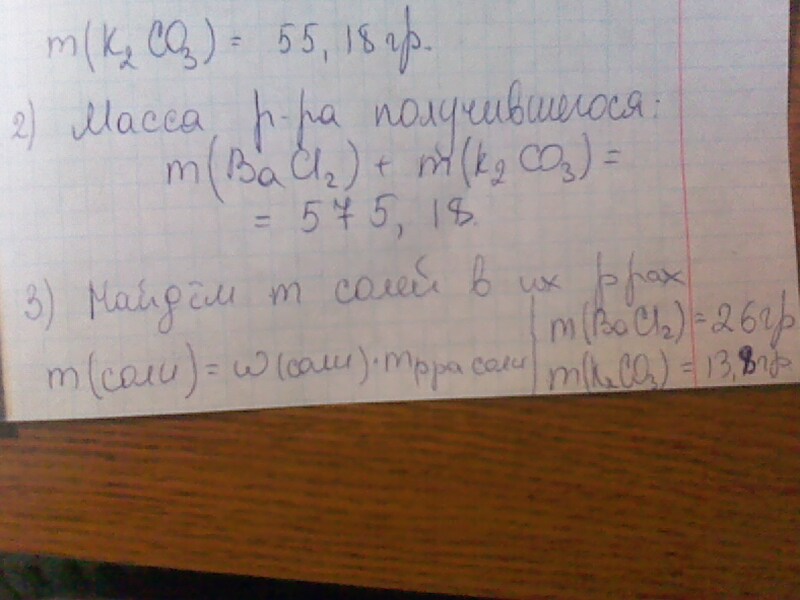 m(K₂CO₃) = 55,18гр.
2) Масса р-ра получившегося:
m(BaCl₂) + m(K₂CO₃) =
= 575,18.
3) Найдём m солей в их р-рах
m(соли) = ω(соли)·mр-ра соли | m(BaCl₂) = 26гр
m(K₂CO₃) = 13,8гр